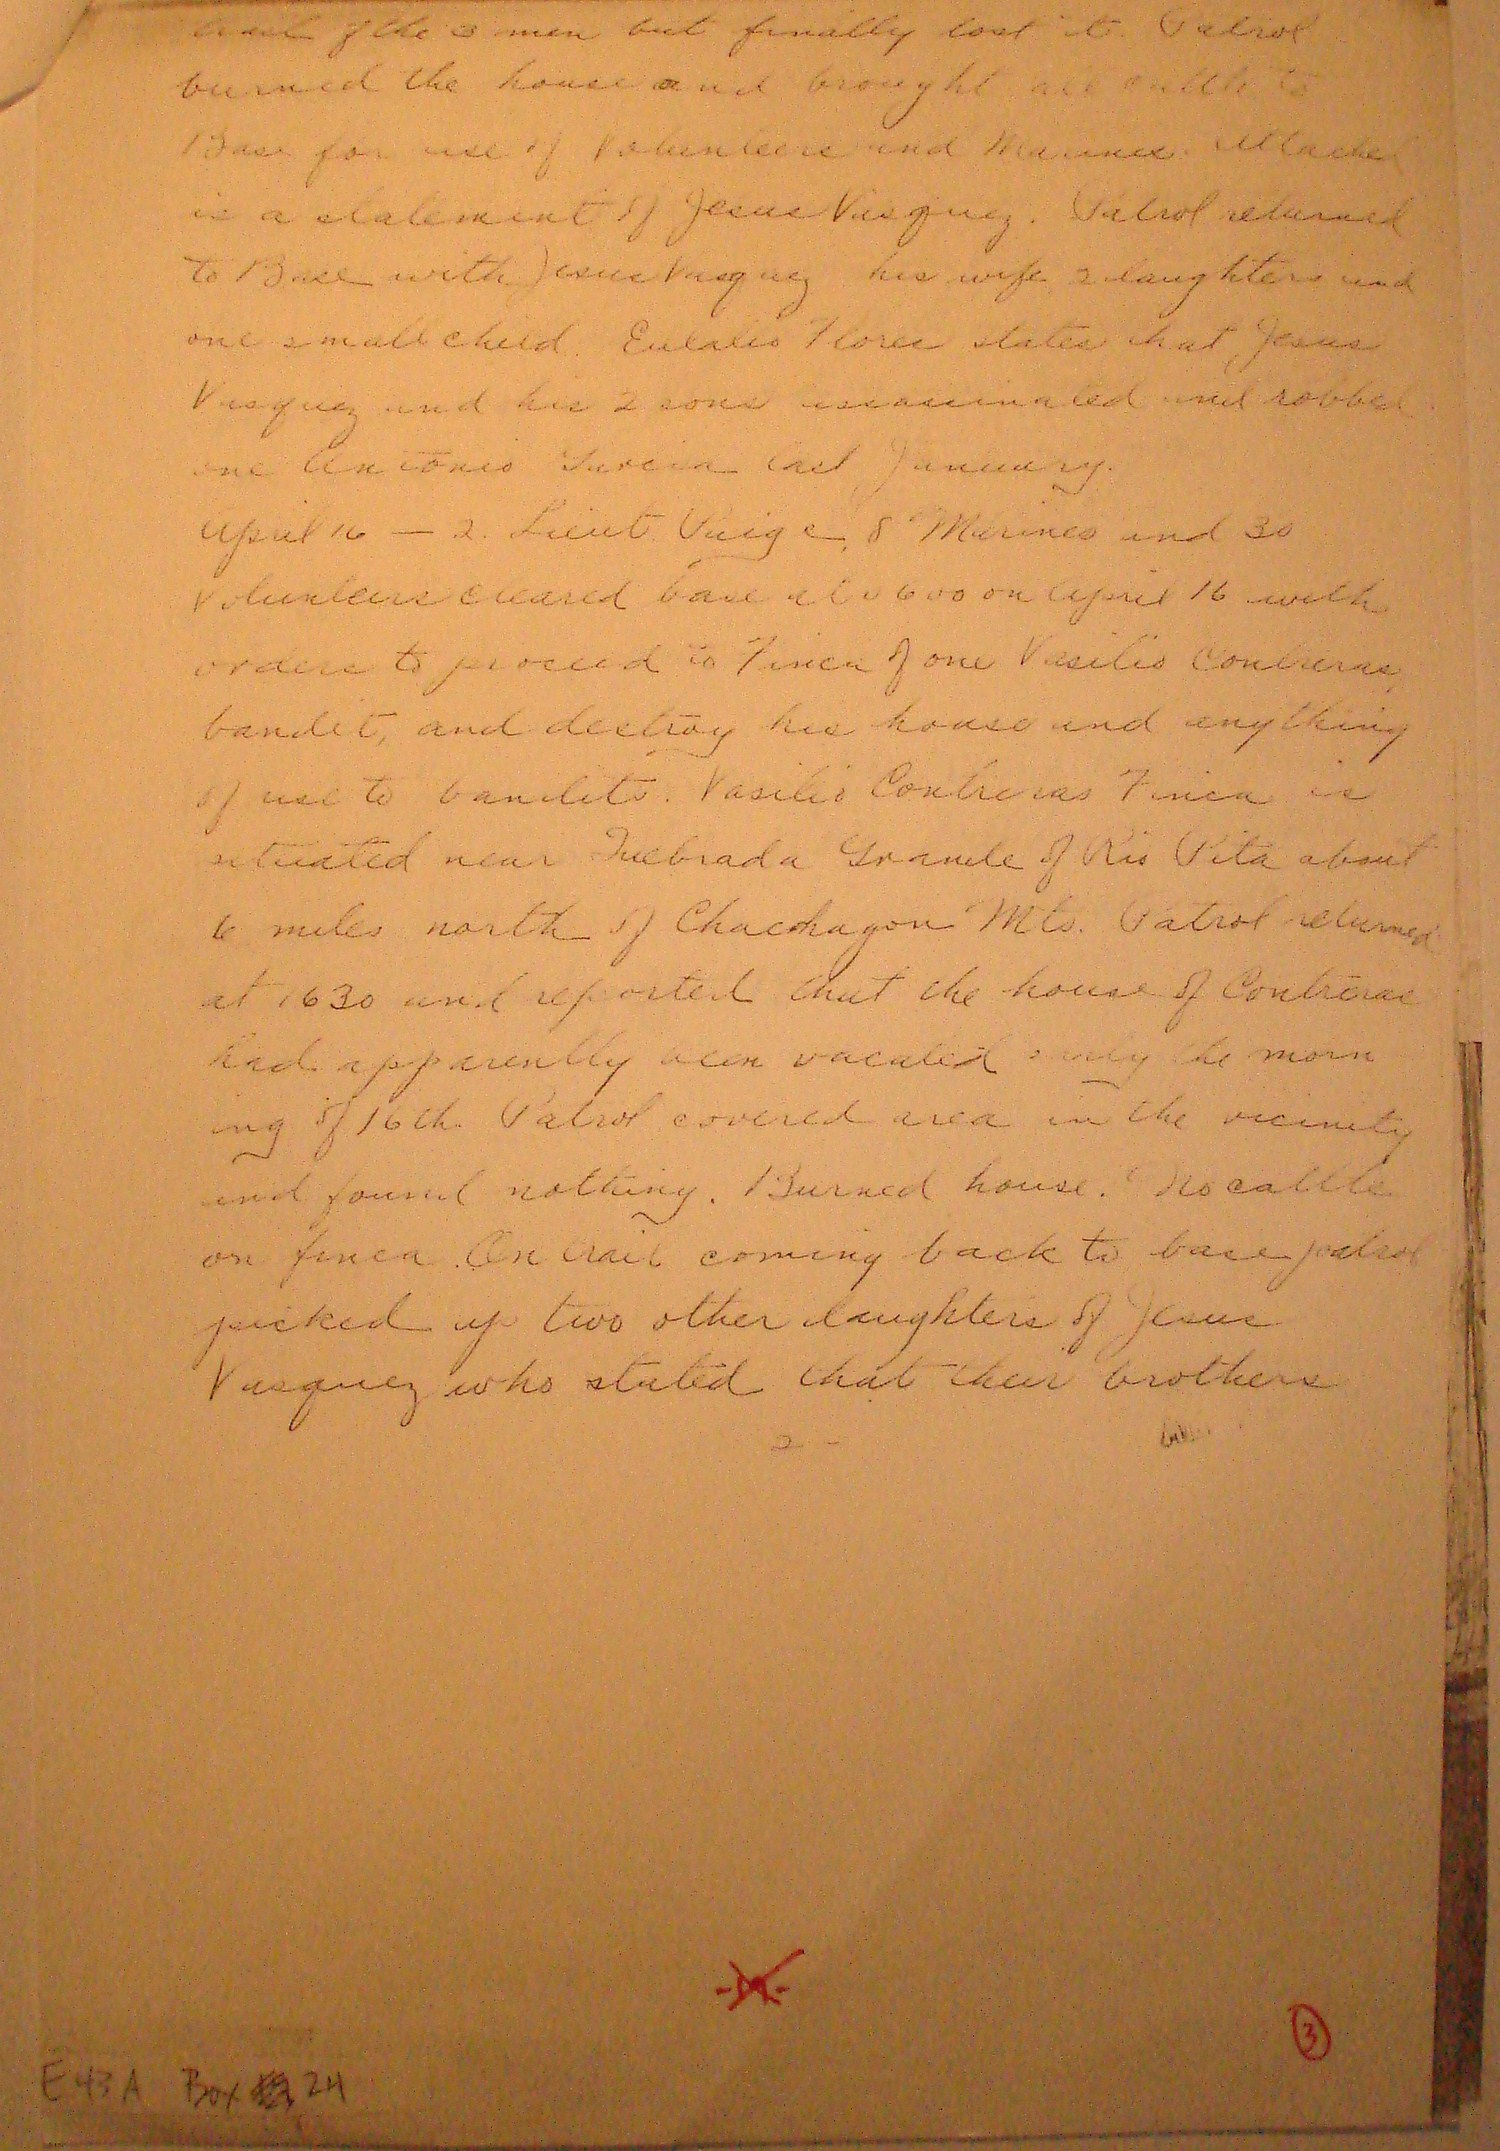 trail of the 3 men but finally lost it. Patrol
burned the house and brought all cattle to
Base for use of Volunteers and Marines. Attached
is a statement of Jesus Vasquez. Patrol returned
to Base with Jesus Vasquez his wife 2 daughters and
one small child. Eulalio Flores states that Jesus
Vasquez and his 2 sons assassinated and robbed
one Antonio Garcia last January.
April 16 — 2. Lieut. Paige, 8 Marines and 30
Volunteers cleared base at 0600 on April 16 with
orders to proceed to Finca of one Vasilio Contreras,
bandit, and destroy his house and anything
of use to bandits. Vasilio Contreras Finca is
situated near Quebrada Grande of Rio Pita about
6 miles north of Chachagon Mts. Patrol returned
at 1630 and reported that the house of Contreras
had apparently been vacated early the morn
ing of 16th. Patrol covered area in the vicinity
and found nothing. Burned house. No cattle
on finca. On trail coming back to base patrol
picked up two other daughters of Jesus
Vasquez who stated that their brothers
2 -
3
E 43 A Box 24